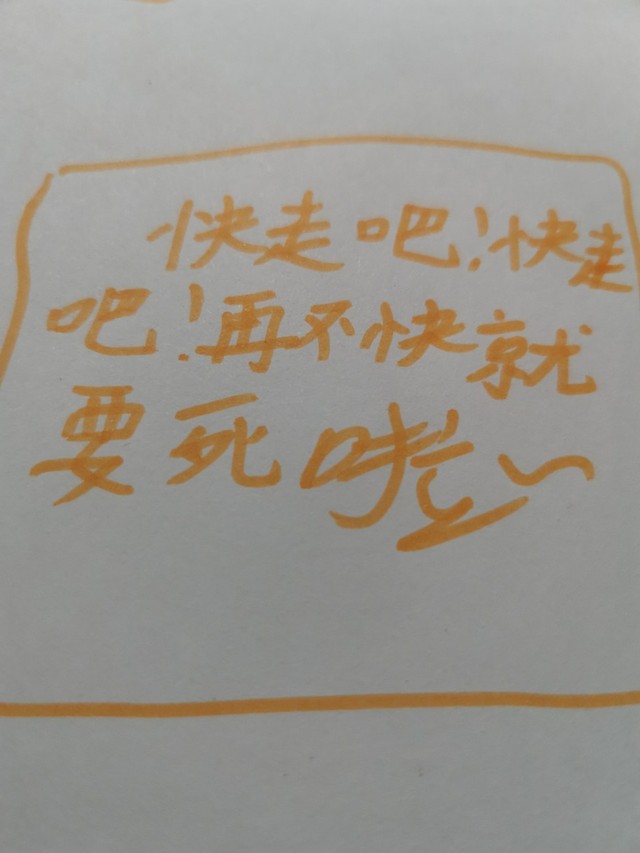 快走吧！快走
吧！再不快就
要死啦～